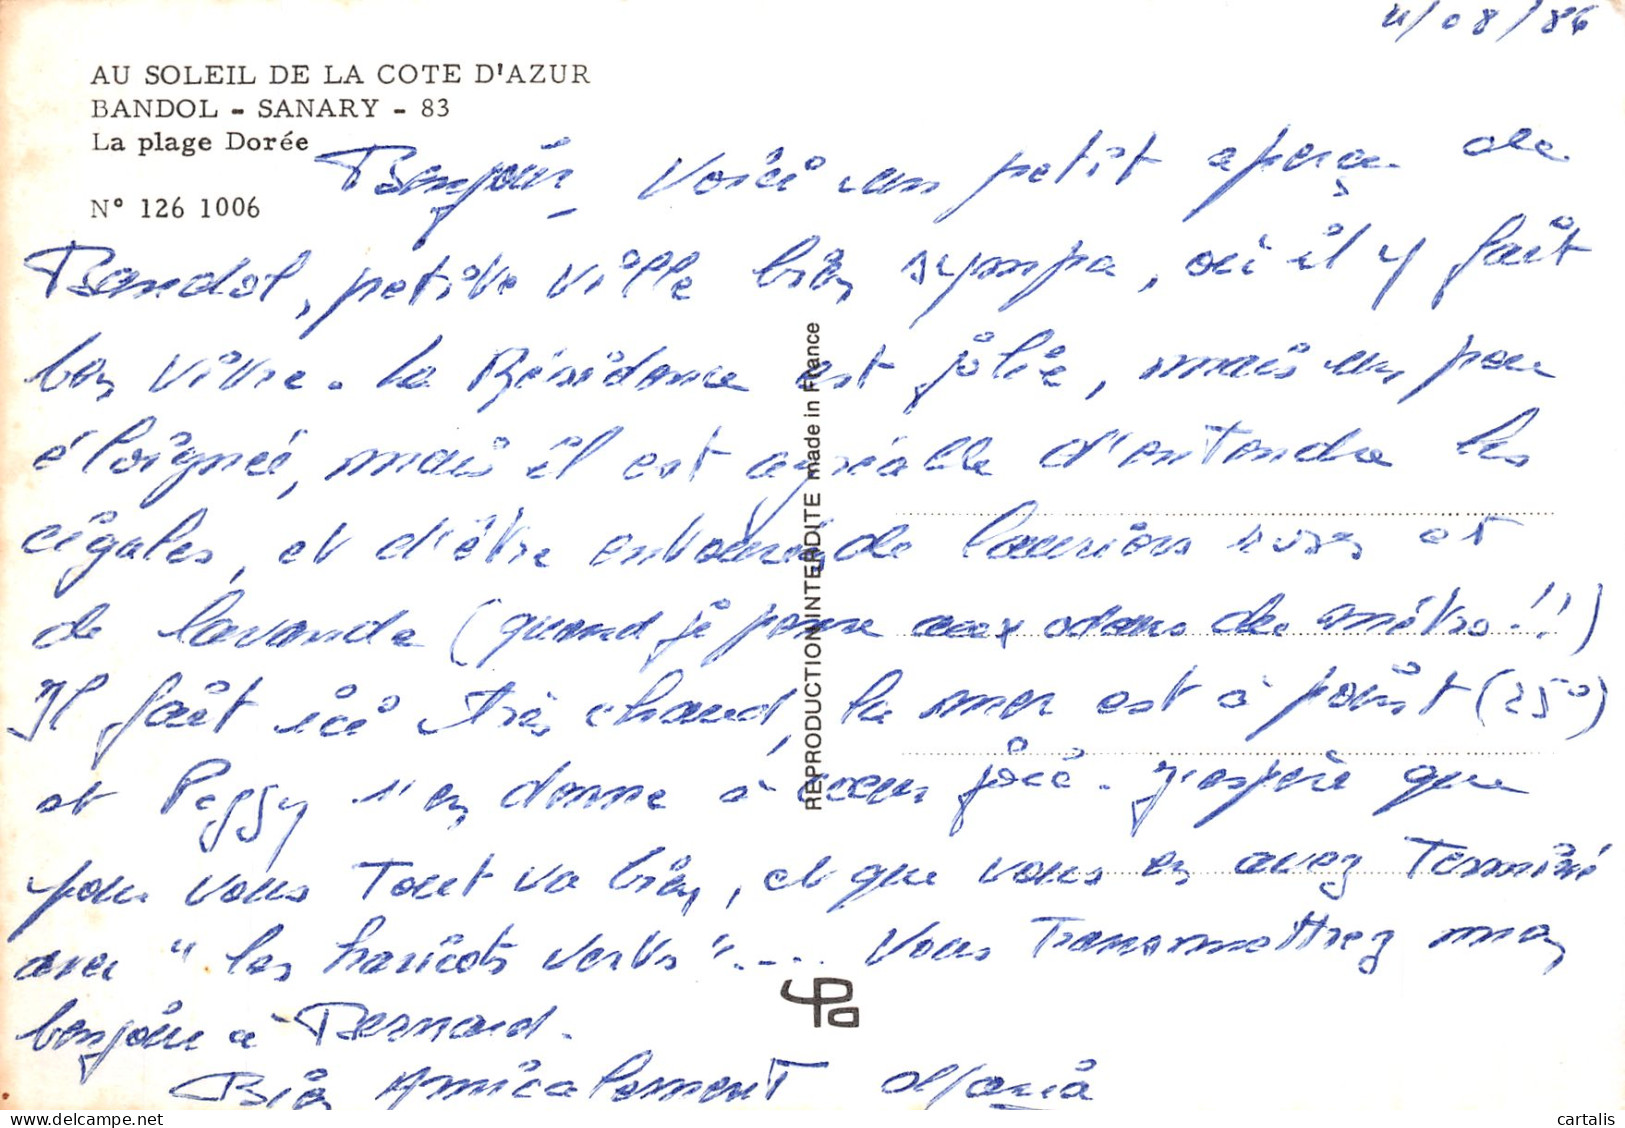 /08/86
AU SOLEIL DE LA COTE D'AZUR
BANDOL - SANARY - 83
La plage Dorée
N° 126 1006
Bonjour, Voici un petit aperçu de
Bandol, petite ville bien sympa, où il y fait
bon vivre. La Résidence est jolie, mais un peu
éloignée, mais il est agréable d'entendre les
cigales, et d'être entourés de lauriers roses et
de lavande (quand je pense aux odeurs de métro!!)
Il fait ici très chaud, la mer est à point (25°)
et Peggy s'en donne à cœur joie. J'espère que
pour vous tout va bien, et que vous en avez terminé
avec "les haricots verts".... Vous transmettrez mon
bonjour à Bernard.
Bien Amicalement Maria
REPRODUCTION INTERDITE made in France
cartalis